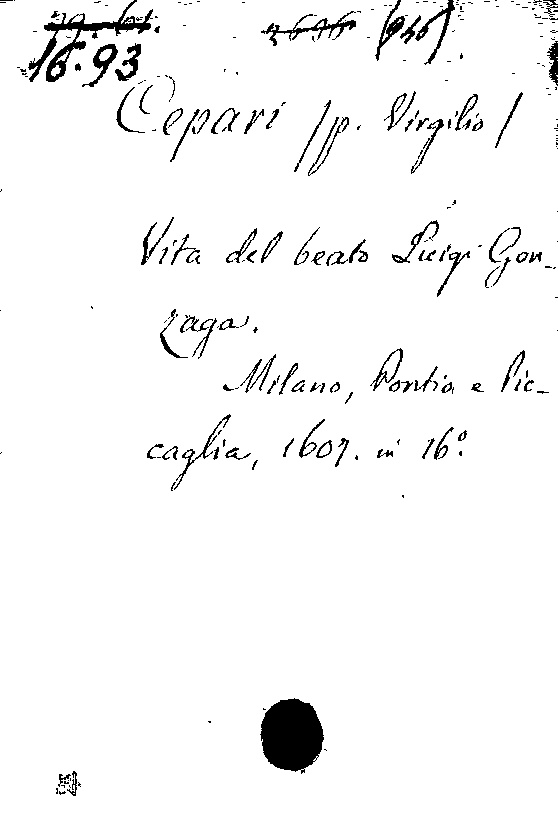 16.93
Cepari /p. Virgilio/
Vita del beato Luigi Gon-
zaga.
Milano, Pontio e Pic-
caglia, 1607. in 16º